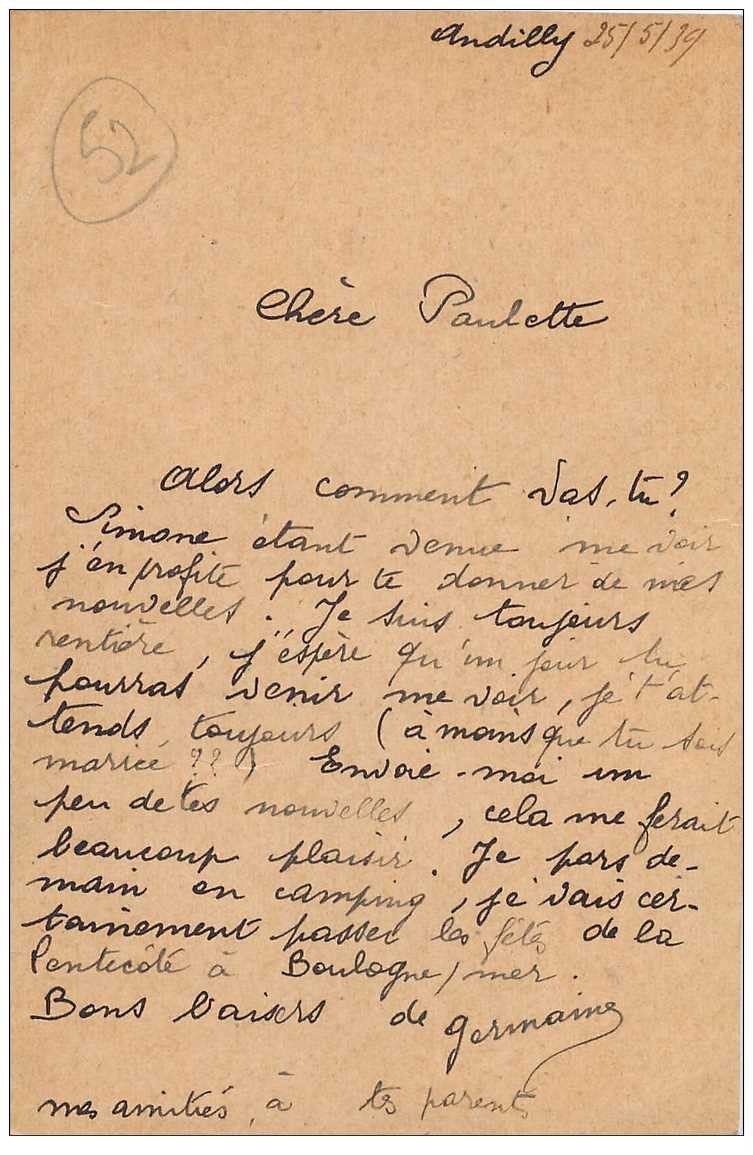 Andilly 25/5/39
52
Chère Paulette
Alors comment vas-tu?
Simone étant venue me voir
j'en profite pour te donner de mes
nouvelles. Je suis toujours
rentière, j'espère qu'un jour tu
pourras venir me voir, je t'at-
tends toujours (à moins que tu sois
mariée ??) Envoie-moi un
peu de tes nouvelles, cela me ferait
beaucoup plaisir. Je pars de-
main en camping, je vais cer-
tainement passer les fêtes de la
Pentecôte à Boulogne/mer.
Bons baisers de Germaine
mes amitiés à tes parents